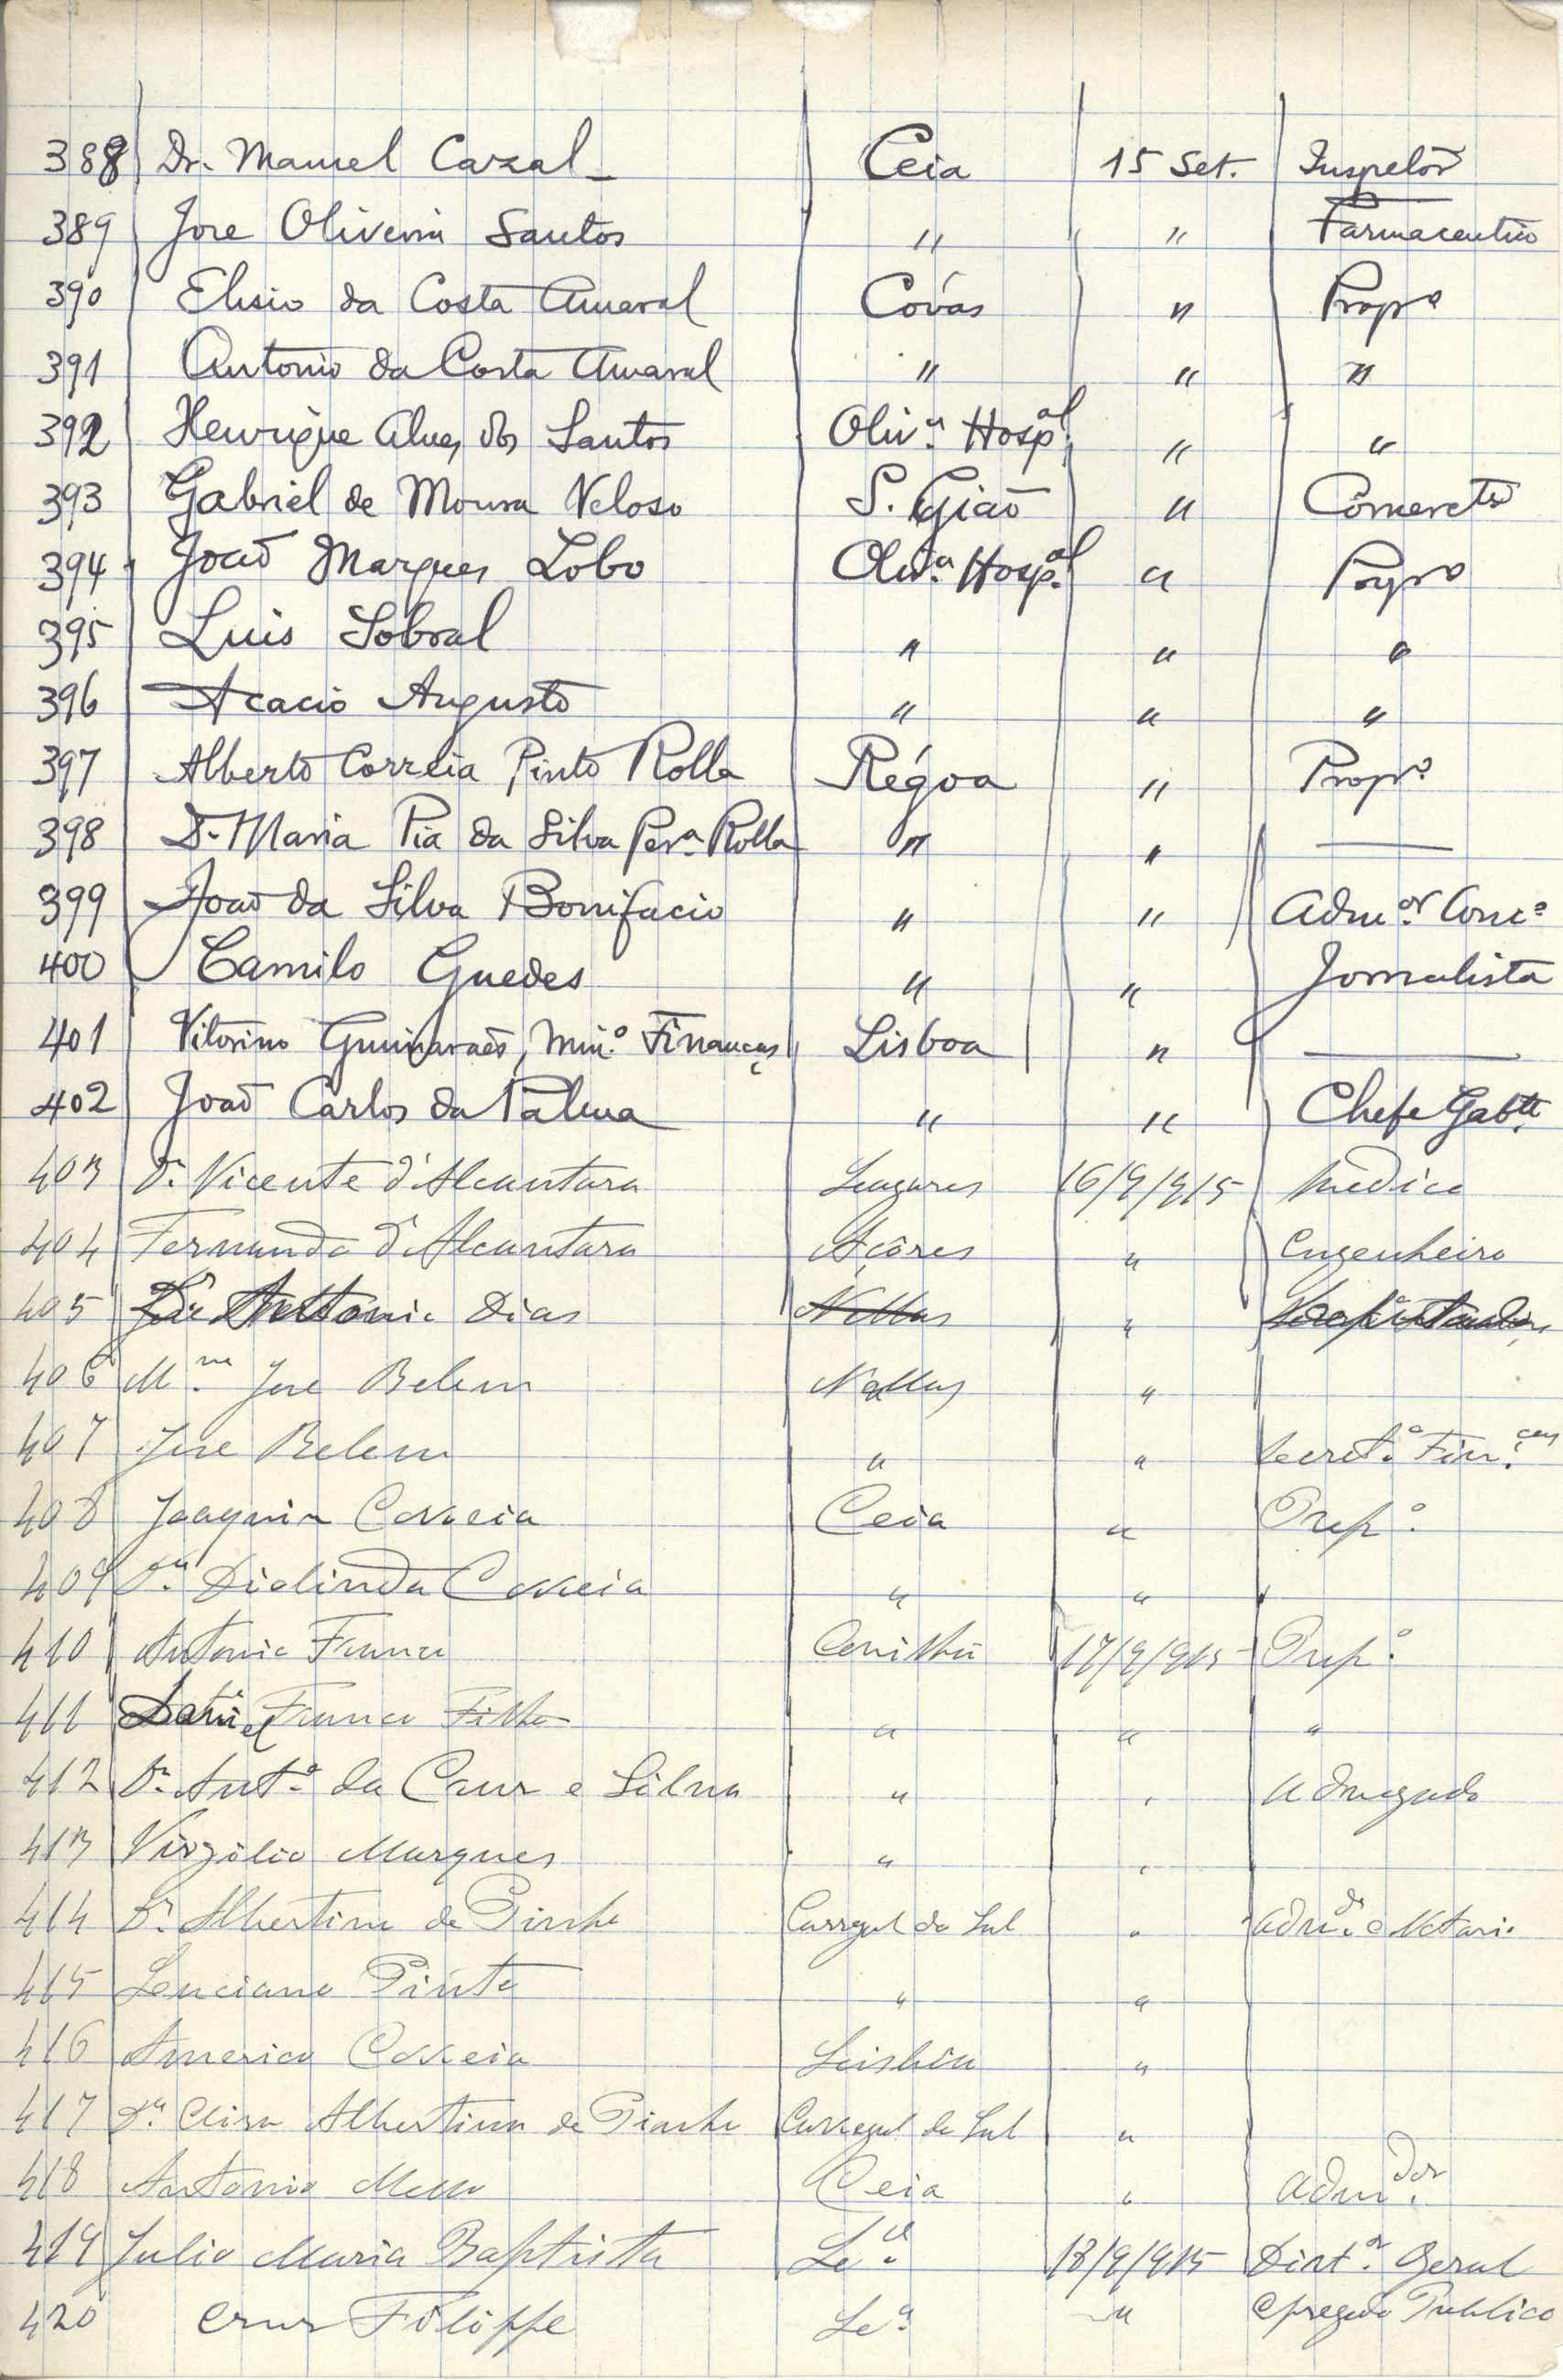 388 Dr. Manuel Cazal Ceia 15 Set. Inspetôr
389 Jose Oliveira Santos " " Farmaceutico
390 Elisio da Costa Amaral Covas " Propº
391 Antonio da Costa Amaral " " "
392 Henrique Alves dos Santos Olivª Hospal " "
393 Gabriel de Moura Veloso S. Gião " Comercte
394 João Marques Lobo Olivª Hospal " Propº
395 Luis Sobral " " "
396 Acacio Augusto " " "
397 Alberto Correia Pinto Rolla Régoa " Proprº
398 D. Maria Pia da Silva Perª Rolla " " —
399 João da Silva Bonifacio " " Admor Concº
400 Camilo Guedes " " Jornalista
401 Vitorino Guimarães, Minº Finanças Lisboa " —
402 João Carlos da Palma " " Chefe Gabte
403 Dr. Vicente d'Alcantara 16/9/915 Medico
404 Fernando d'Alcantara Açôres " Engenheiro
405 Antonio Dias Nellas "
406 Mme Jose Belem Nellas "
407 Jose Belem " " Secretº Finças
408 Joaquim Correia Ceia " Propº
409 Dª Diolinda Correia " " "
410 Antonio Franco Covilhã 17/9/915 Propº
411 Daniel Franco Filho " " "
412 Dr. Antº da Cruz e Silva " " Advogado
413 Virgilio Marques " "
414 Dr. Albertino de Pinho Carregal do Sal " Admdr e Notario
415 Luciano Pinto " "
416 Americo Correia Lisboa "
417 Dª Elisa Albertina de Pinho Carregal do Sal "
418 Antonio Mello Ceia " Admdor
419 Julio Maria Baptista Lxª 18/9/915 Diretor Geral
420 Cruz Filippe Lxª " Epregado Publico